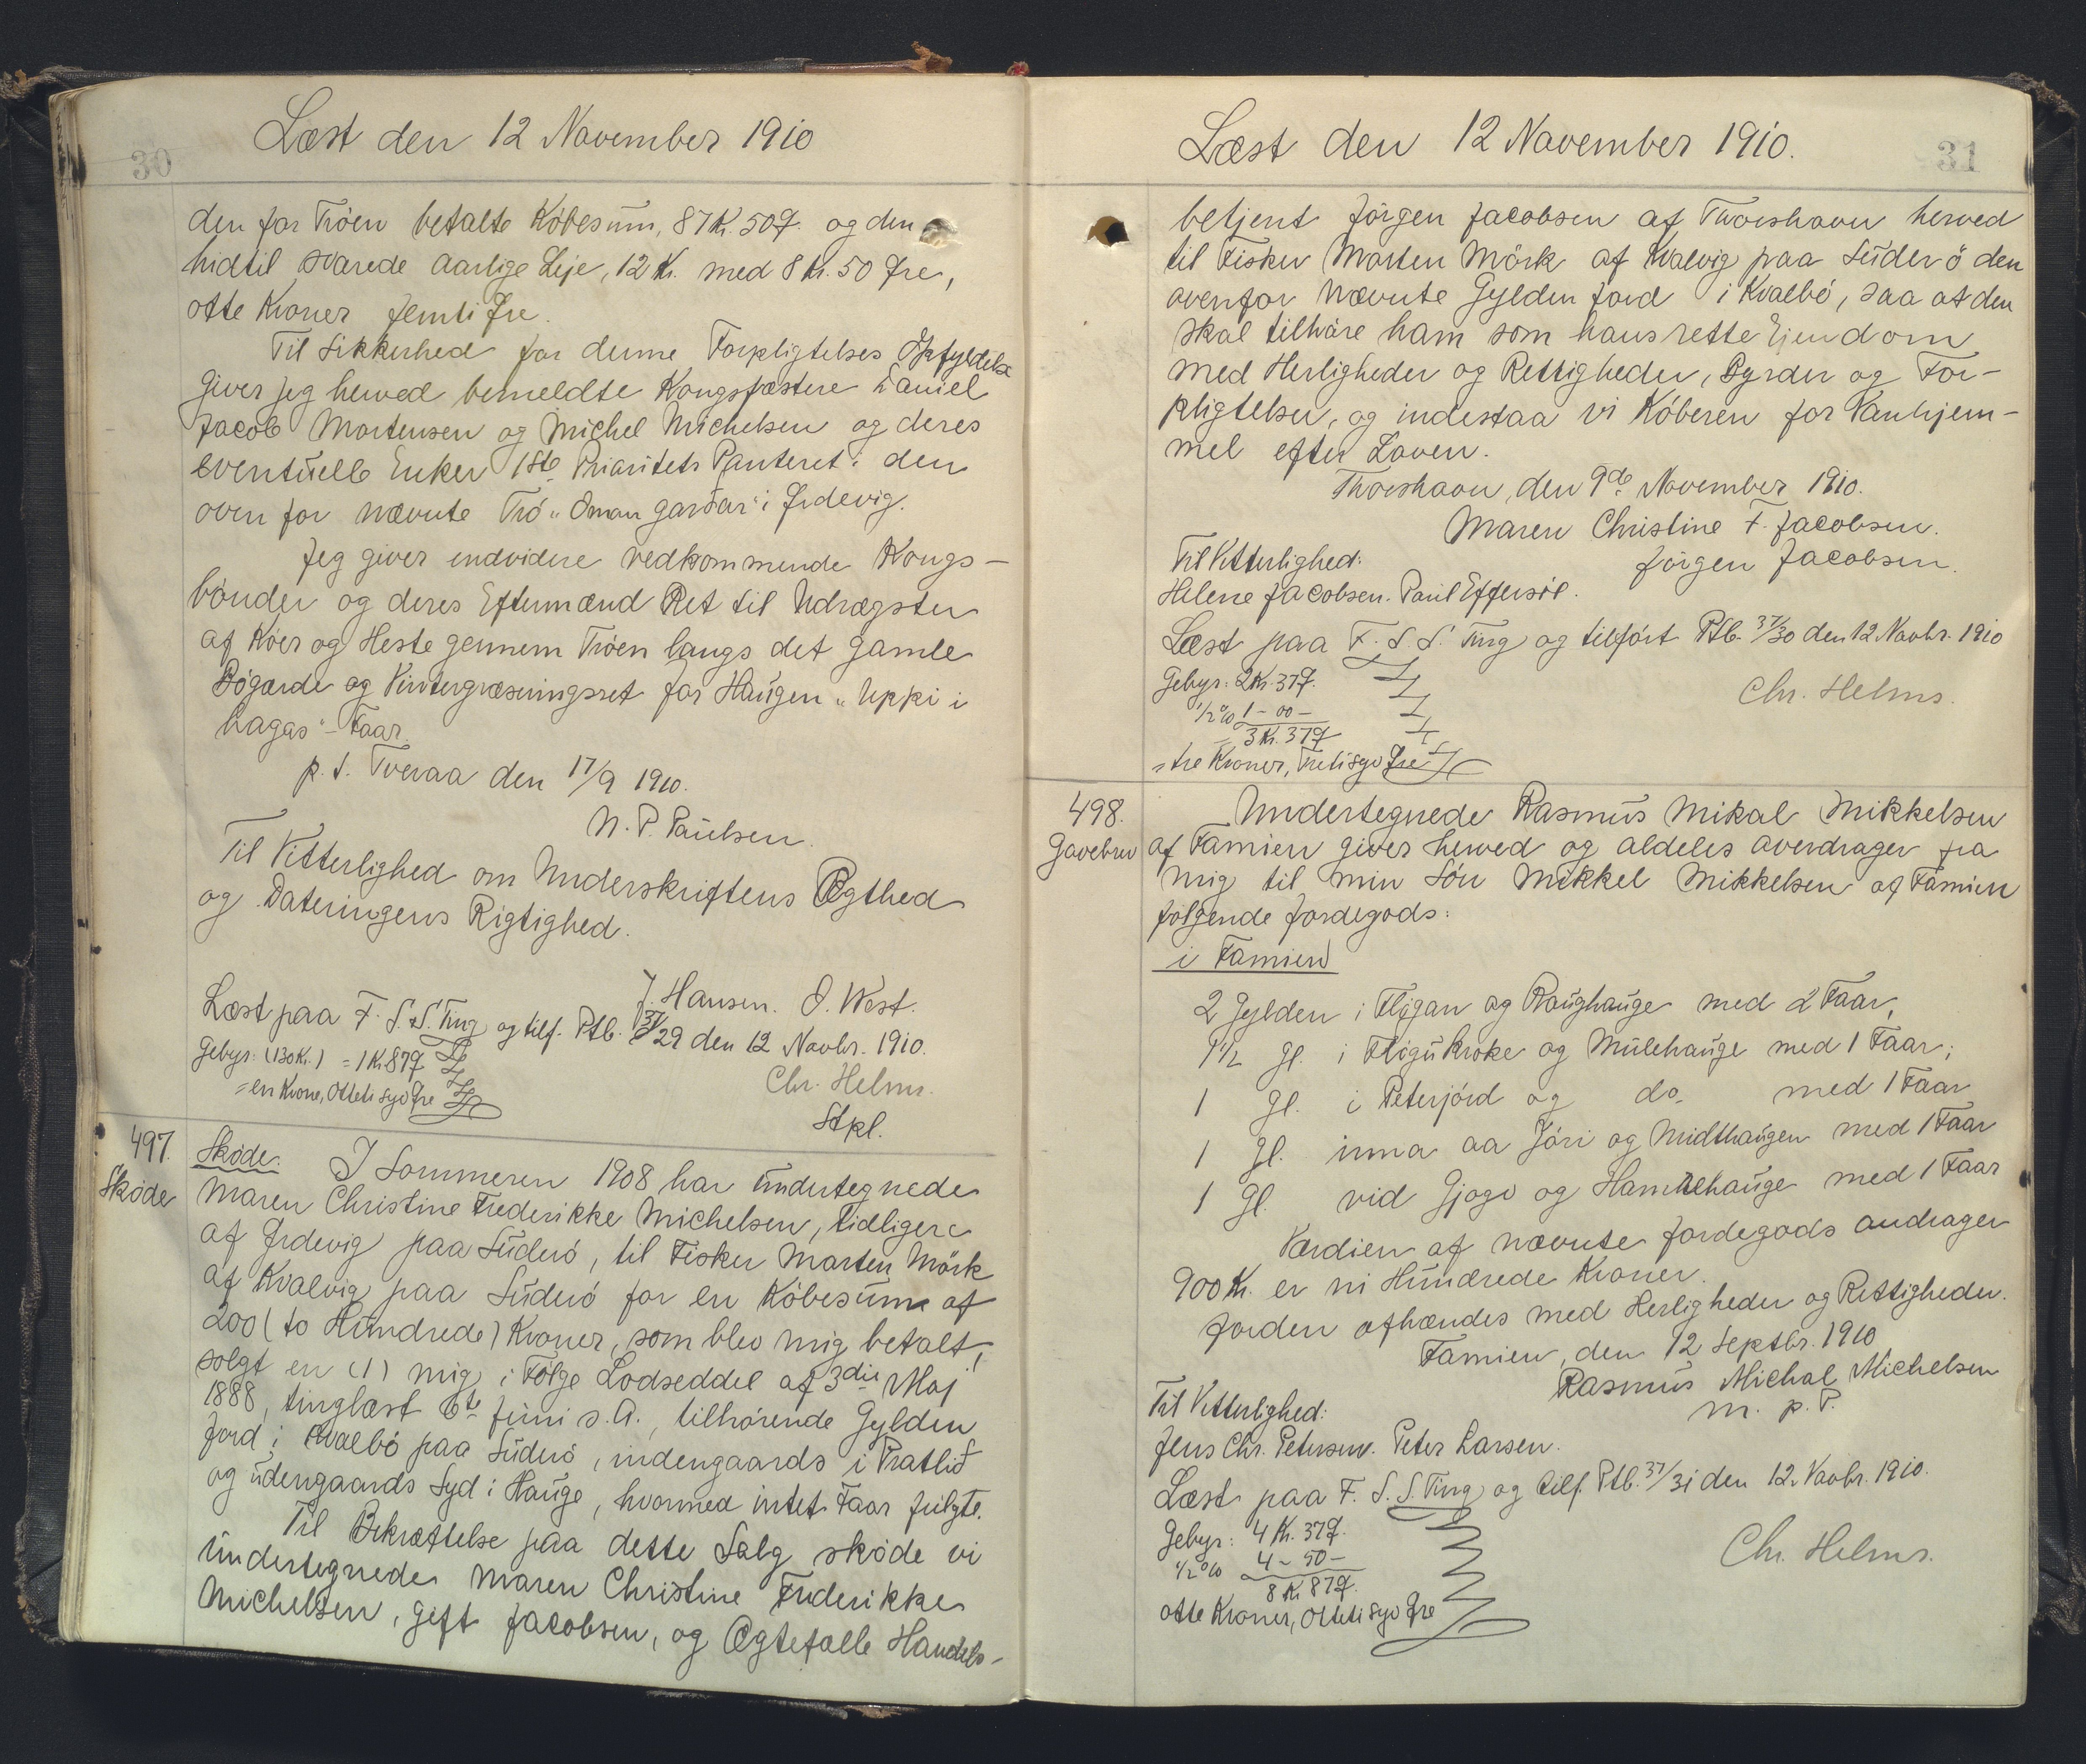 30
Læst den 12 November 1910
den for Tröen betalte Köbesum, 87 Kr. 50 Ø. og den
hidtil svarede aarlige Leje, 12 K. med 8 Kr. 50 Øre,
otte Kroner femti Øre.
Til Sikkerhed for denne Forpligtelses Opfyldelse
giver jeg herved bemeldte Kongsfæstere Daniel
Jacob Mortensen og Michel Michelsen og deres
eventuelle Enker 1ste Prioritets Panteret i den
oven for nævnte Trö "Oman gardar" i Ørdevig.
Jeg giver endvidere vedkommende Kongs-
bönder og deres Eftermænd Ret til Udrægster
af Köer og Heste gennem Tröen langs det gamle
Bögærde og Vintergræsningsret for Haugen "Uppi i
hagas" - Faar.
p. t. Tveraa den 17/9 1910.
N. P. Paulsen.
Til Vitterlighed om Underskriftens Ægthed
og Dateringens Rigtighed.
J. Hansen. O. West.
Læst paa F. S. S. Ting og tilf. Ptb. 37/29 den 12 Novbr. 1910.
Gebyr: (130 Kr.) = 1 Kr. 87 Ø
= en Krone, Otteti syv Øre
Chr. Helms.
Stpl.
497.
Sköde
Sköde. I Sommeren 1908 har undertegnede
Maren Christine Frederikke Michelsen, tidligere
af Ørdevig paa Suderö, til Fisker Morten Mörk
af Kvalvig paa Suderö for en Köbesum af
200 (to Hundrede) Kroner, som blev mig betalt,
solgt en (1) mig i Fölge Lodseddel af 3die Maj
1888, tinglæst 6te Juni s. A., tilhörende Gylden
Jord i Kvalbö paa Suderö, indengaards i Tratlid
og udengaards Syd i Hauge, hvormed intet Faar fulgte.
Til Bekræftelse paa dette Salg sköde vi
undertegnede Maren Christine Frederikke
Michelsen, gift Jacobsen, og Ægtefælle Handels-
31
Læst den 12 November 1910.
betjent Jörgen Jacobsen af Thorshavn herved
til Fisker Morten Mörk af Kvalvig paa Suderö den
ovenfor nævnte Gylden Jord i Kvalbö, saa at den
skal tilhöre ham som hans rette Ejendom
med Herligheder og Rettigheder, Byrder og For-
pligtelser, og indestaa vi Köberen for Vanhjem-
mel efter Loven.
Thorshavn, den 9de November 1910.
Maren Christine F. Jacobsen.
Jörgen Jacobsen.
Til Vitterlighed:
Helene Jacobsen. Paul Effersöl.
Læst paa F. S. S. Ting og tilfört Ptb. 37/30 den 12 Novbr. 1910
Gebyr: 2 Kr. 37 Ø.
1/2 % 1 - 00 -
3 Kr. 37 Ø
= tre Kroner, Treti syv Øre
Chr. Helms.
498.
Gavebrev
Undertegnede Rasmus Mikal Mikkelsen
af Famien giver herved og aldeles overdrager fra
mig til min Sön Mikkel Mikkelsen af Famien
fölgende Jordegods:
i Famien
2 Gylden i Fligan og Raughauge med 2 Faar,
1 1/2 Gl. i Fligukroke og Mulehauge med 1 Faar;
1 Gl. i Peterjörd og do. med 1 Faar
1 Gl. inna aa Jöri og Midthaugen med 1 Faar
1 Gl. vid Gjogv og Hamrehauge med 1 Faar
Værdien af nævnte Jordegods andrager
900 Kr. er ni Hundrede Kroner.
Jorden afhændes med Herligheder og Rettigheder.
Famien, den 12 Septbr. 1910
Rasmus Michal Michelsen
m. p. P.
Til Vitterlighed:
Jens Chr. Petersen. Peter Larsen.
Læst paa F. S. S. Ting og tilf. Ptb. 37/31 den 12. Novbr. 1910.
Gebyr: 4 Kr. 37 Ø.
1/2 % 4 - 50 -
8 Kr. 87 Ø.
otte Kroner, Otteti syv Øre
Chr. Helms.